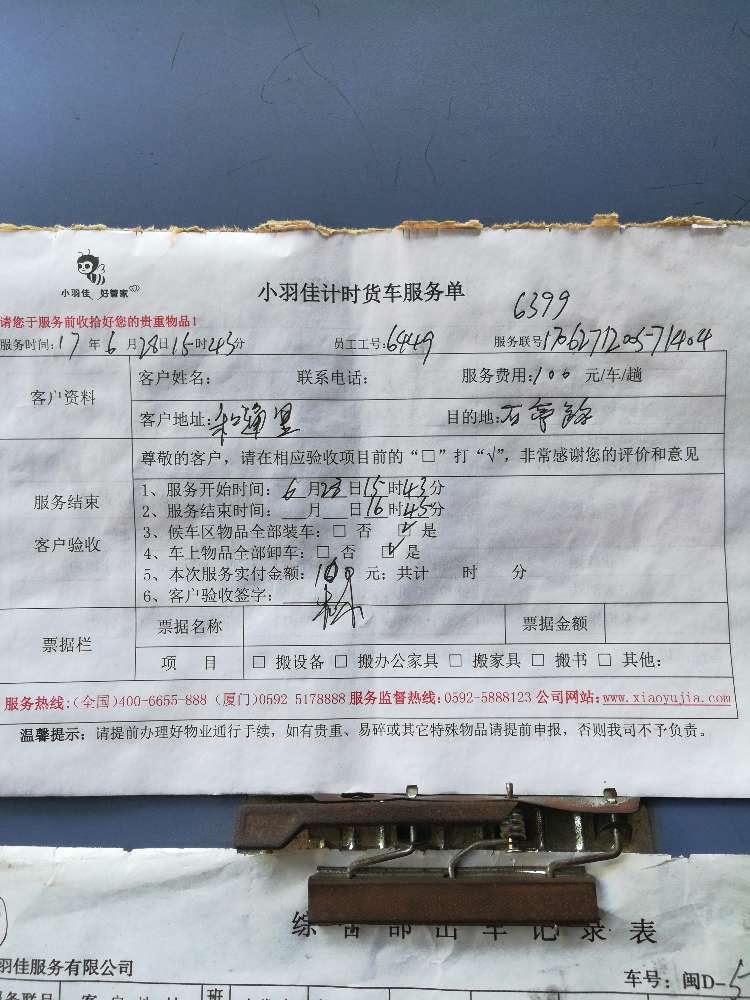 小羽佳 好管家
小羽佳计时货车服务单
6399
请您于服务前收拾好您的贵重物品!
服务时间:17年6月28日15时43分 员工工号:6449 服务联号1706271205-71404
客户资料
客户姓名: 联系电话: 服务费用:100 元/车/趟
客户地址: 目的地:
尊敬的客户,请在相应验收项目前的“□”打“√”,非常感谢您的评价和意见
服务结束
客户验收
1、服务开始时间:6月28日15时43分
2、服务结束时间: 月 日16时45分
3、候车区物品全部装车:□ 否 ☑ 是
4、车上物品全部卸车:□ 否 ☑ 是
5、本次服务实付金额:100 元;共计 时 分
6、客户验收签字:
票据栏
票据名称 票据金额
项 目 □ 搬设备 □ 搬办公家具 □ 搬家具 □ 搬书 □ 其他:
服务热线:(全国)400-6655-888 (厦门)0592 5178888 服务监督热线:0592-5888123 公司网站:www.xiaoyujia.com
温馨提示:请提前办理好物业通行手续,如有贵重、易碎或其它特殊物品请提前申报,否则我司不予负责。
综合部出车记录表
羽佳服务有限公司 车号:闽D-5